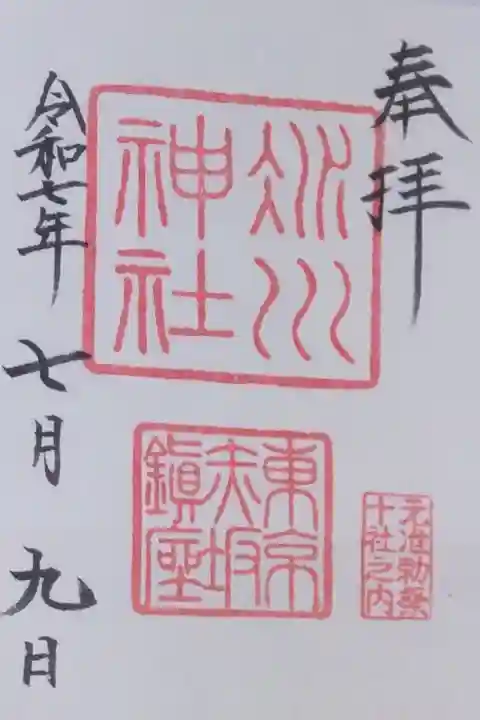 奉拝
氷川
神社
東京
赤坂
鎮座
元准勅祭
十社之内
令和七年
七月
九日